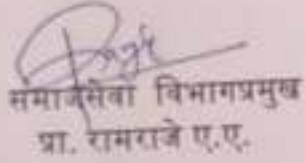 समाजसेवा विभागप्रमुख
प्रा. रामराजे ए.ए.